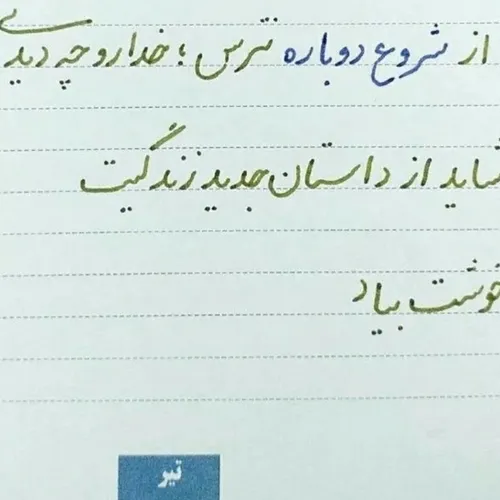 از شروع دوباره نترس ؛ خدا رو چه دیدی
شاید از داستان جدید زندگیت
خوشت بیاد
تیر